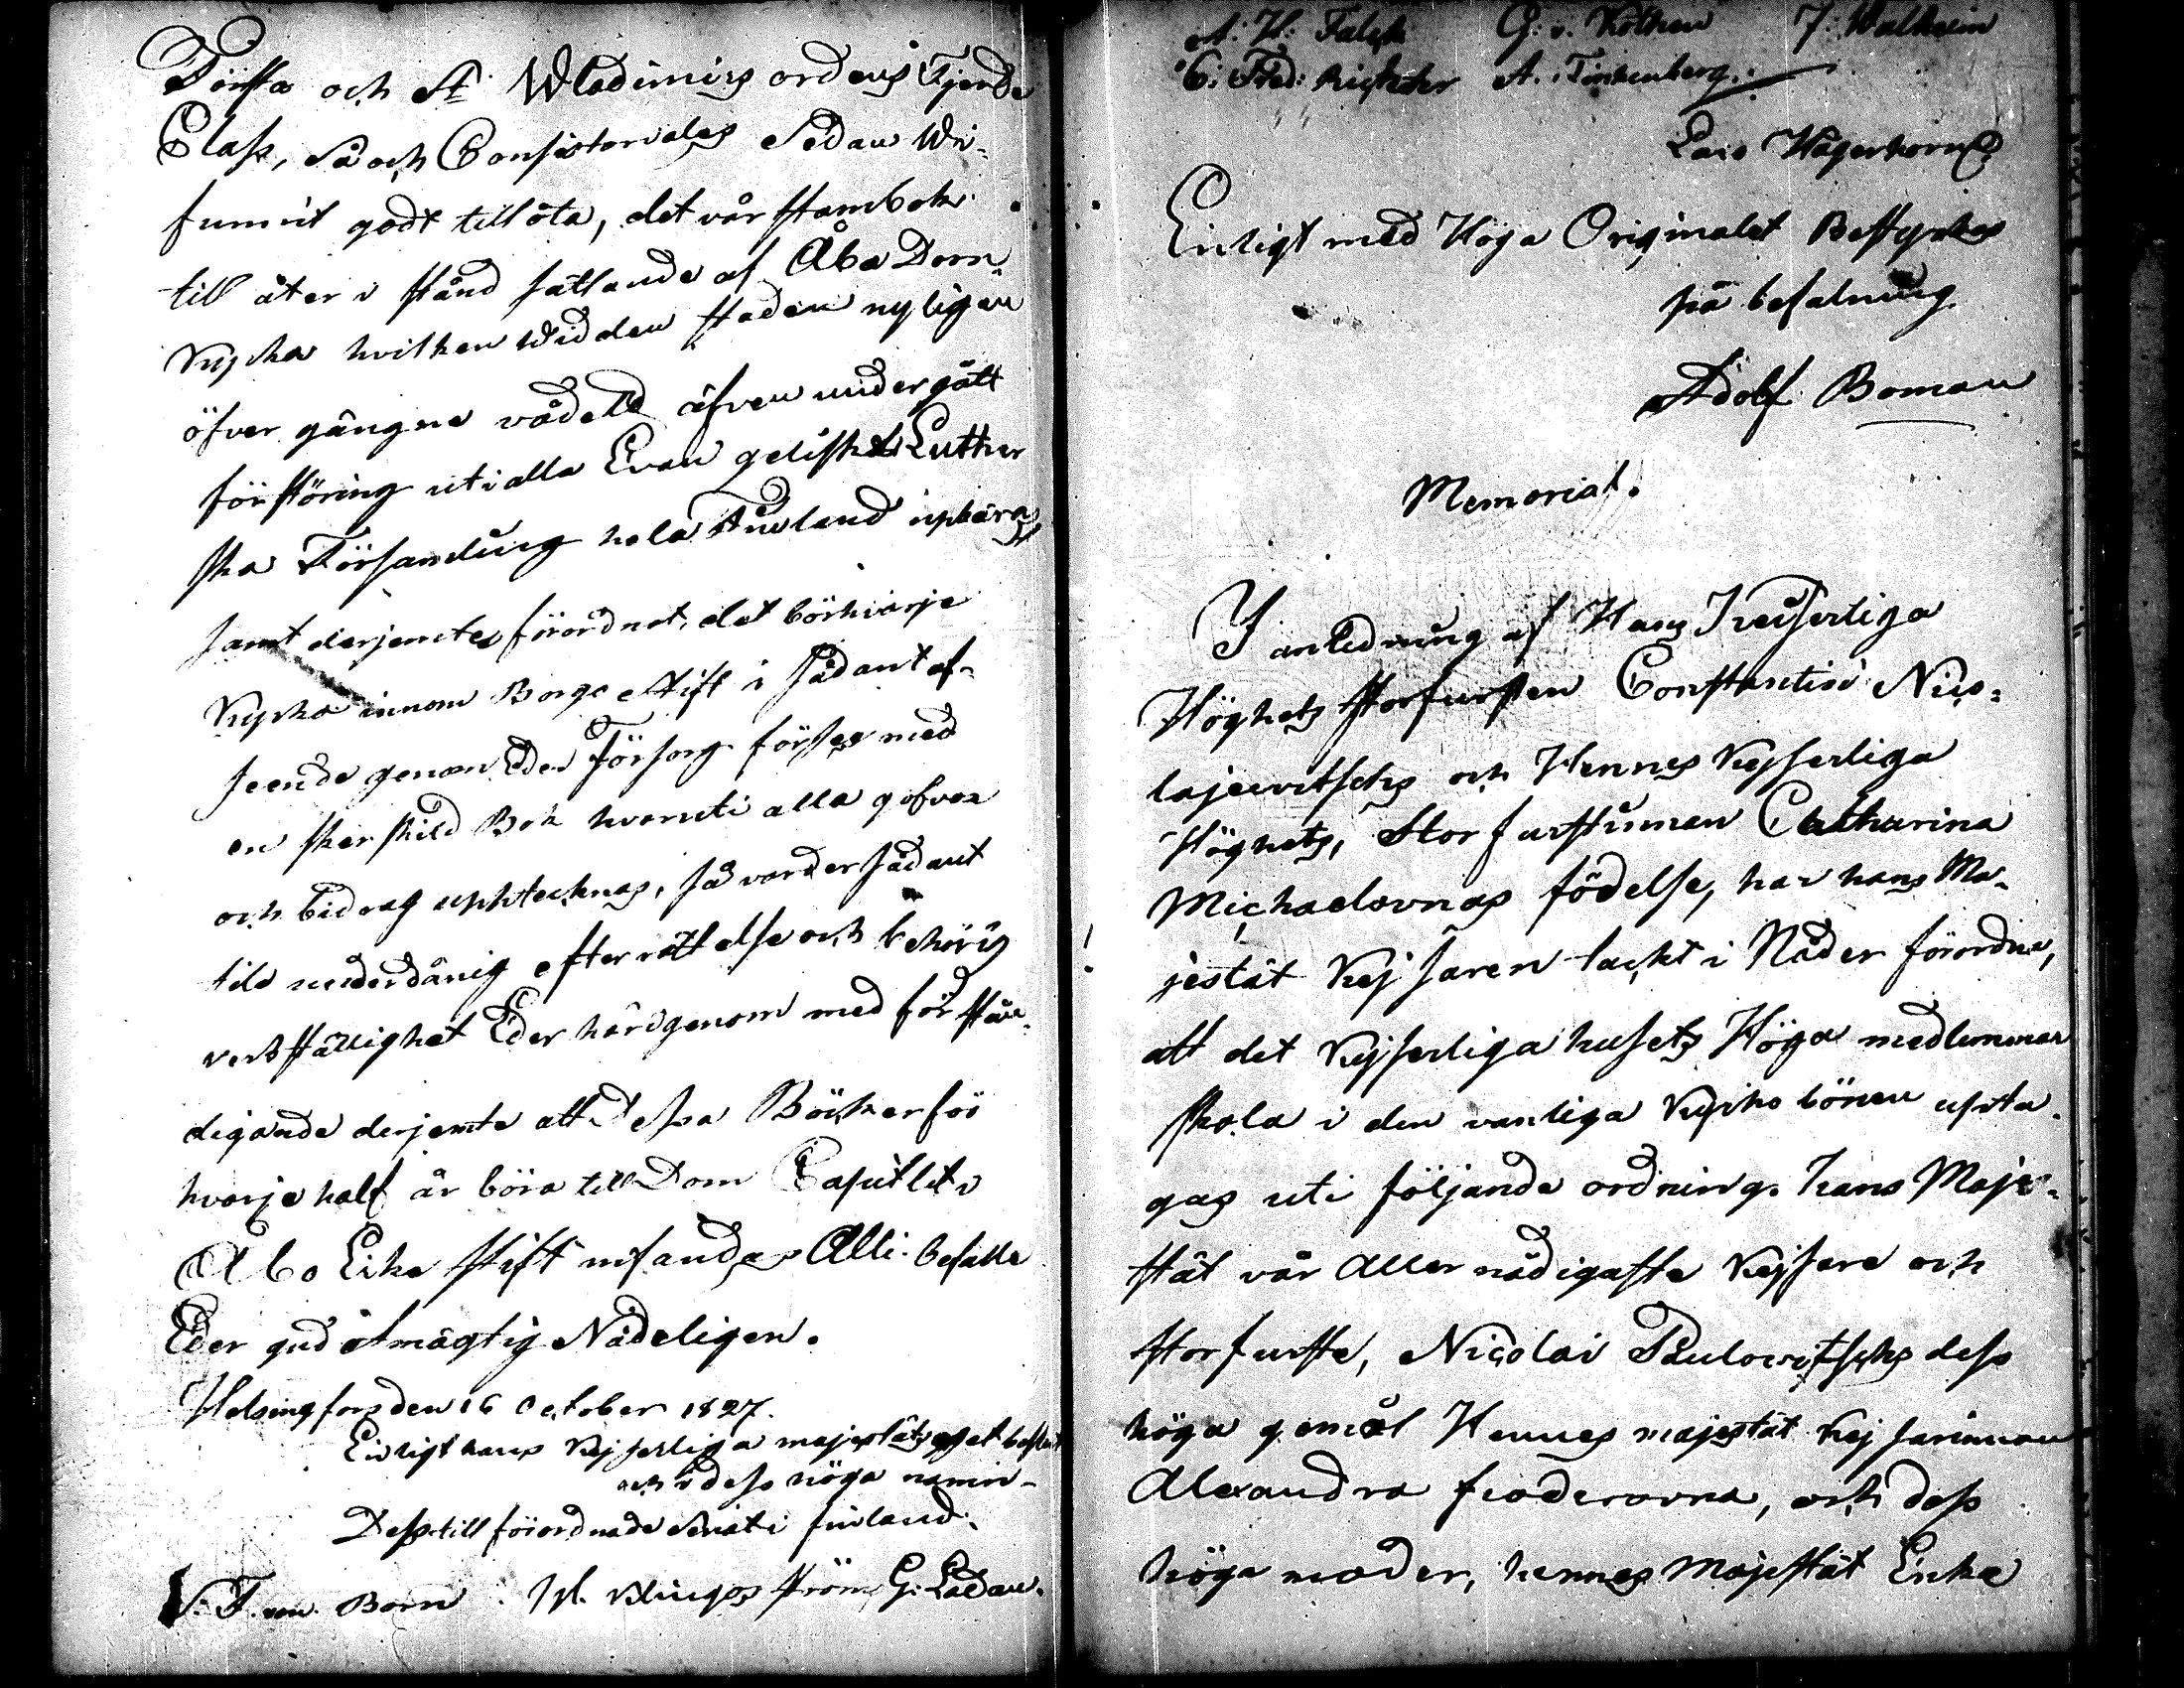 Första och St Wladimirs ordens Fjerde
Class, Så och Consistoriales Sedan Wi-
funnit godt tillåta, det vår stambok
till åter i stånd sättande af Åbo Dom
Kyrka hvilken Wid den staden nyligen
öfver gångne vådeld äfven undergått
förstöring uti alla Evan geliska Luther
ska Församling hela Finland upbäras
samt derjemte förordnat, det bör hvarje
Kyrka innom Borgo Stift i sådant af-
seende genom Eder Försorg förses med
en skerskild Bok hvaruti alla gofvor
och bidrag uphtecknas, så varder sådant
till underdånig efterrättelse och behörig
verkställighet Eder härigenom med förstän-
digande derjemte att dessa Böcker för
hvarje half år böra till Dom Capitlet i
Åbo Erke stift insandas Alli. befalle
Eder gud Almägtig Nådeligen.
Helsingfors den 16 October 1827.
Enligt hans Kejserliga majestäts eget beslut
och i dess höga namn-
Dess till förordnade Senat i finland.
V. F. von Born W. Klingström G. Ladau.
A: H: Falck G: v. Kothen J: Walheim
C: Fred: Richter A. Tinkenberg.
Lars Hägerhorn
Enligt med Höga Originalet Bestyrkes
på befalning
Adolf Boman
Memorial.
I anledning af Hans Keiserliga
Höghets Storfursten Constantin Nico-
lajewitschs och Hennes Kejserliga
Höghets, Storfurstinnan Catharina
Michaelovnas födelse, har hans Ma-
jestät Kejsaren täckt i Nåder förordna,
att det Kejserliga husets Höga medlemmar
skola i den vanliga Kyrko bönen upta-
gas uti följande ordning. Hans Maje-
stät vår Allernådigaste Kejsare och
Storfurste, Nicolai Paulowitschs dess
höga gemål Hennes majestät Kejsarinnan
Alexandra feoderovna, och dess
höga moder, hennes Majestät Enke